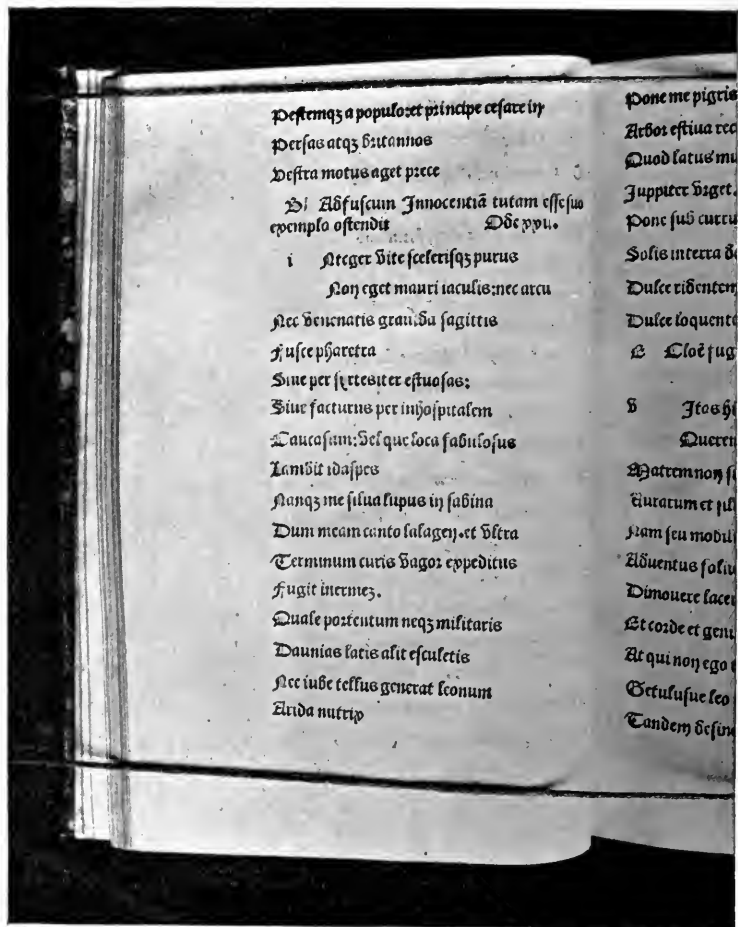 Pestemqꝫ a populo:et principe cesare in
Persas atqꝫ britannos
Vestra motus aget prece
Ad fuscum Innocentiā tutam esse suo
exemplo ostendit Ode xxii.
i Nteger vite scelerisqꝫ purus
Non eget mauri iaculis:nec arcu
Nec venenatis grauida sagittis
Fusce pharetra
Siue per syrtes iter estuosas:
Siue facturus per inhospitalem
Caucasum:vel que loca fabulosus
Lambit idaspes
Nanqꝫ me silua lupus in sabina
Dum meam canto lalagen.et vltra
Terminum curis vagor expeditus
Fugit inermeꝫ.
Quale portentum neqꝫ militaris
Daunias latis alit esculetis
Nec iube tellus generat leonum
Arida nutrix
Pone me pigris
Arbor estiua rec
Quod latus mu
Juppiter vrget.
Pone sub curru
Solis in terra
Dulce ridentem
Dulce loquente
Cloē fug
v Itas hi
Queren
Matrem non si
Auratum et
Nam seu mobil
Aduentus foliu
Dimouere lacer
Et corde et genu
At qui non ego t
Getulusue leo
Tandem desine